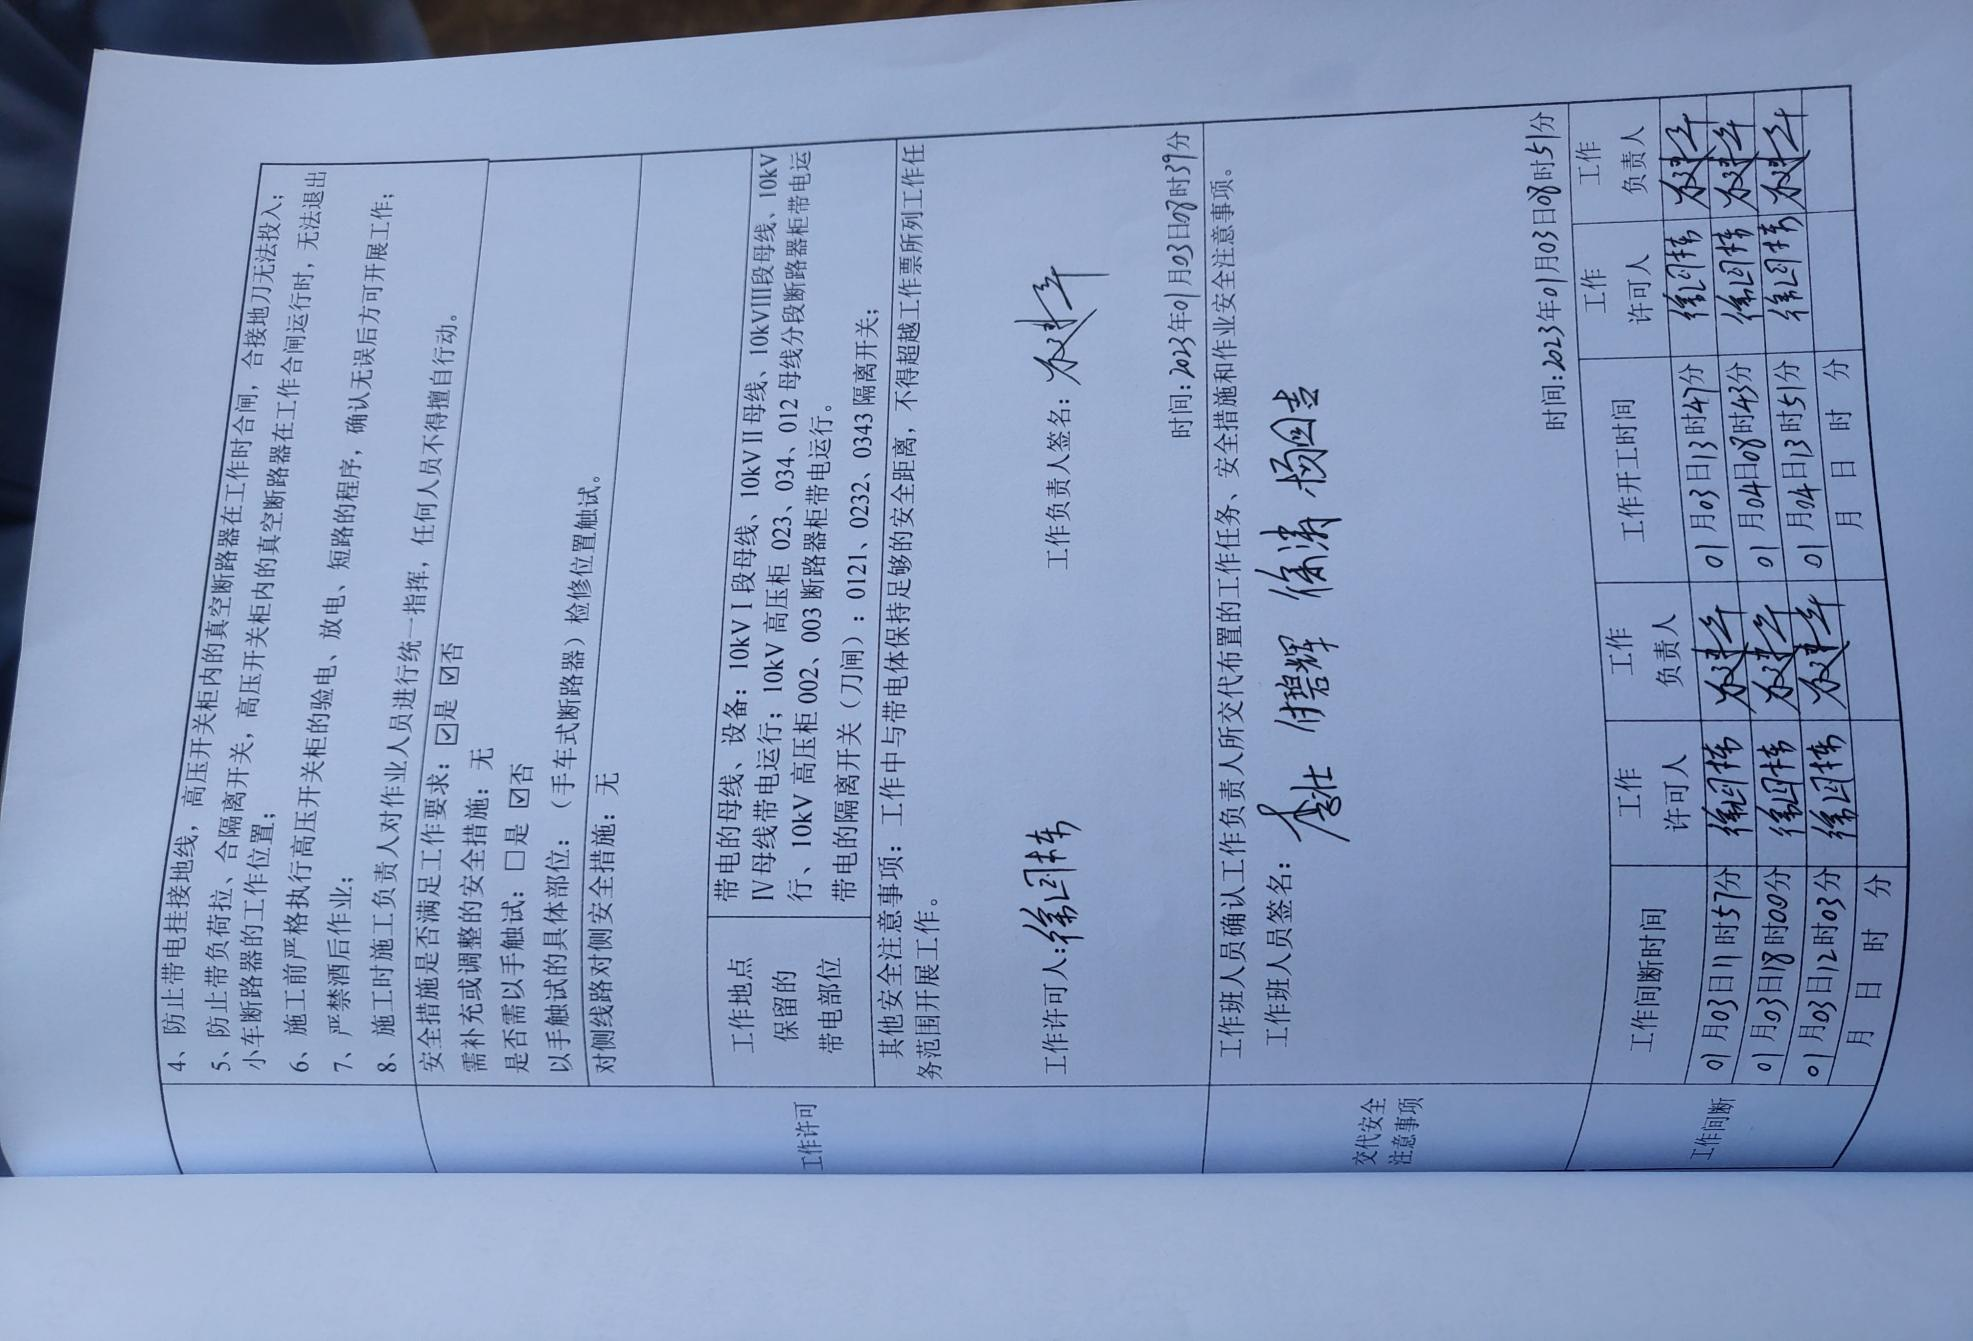 4、防止带电挂接地线，高压开关柜内的真空断路器在工作时合闸，合接地刀无法投入；
5、防止带负荷拉、合隔离开关，高压开关柜内的真空断路器在工作合闸运行时，无法退出
小车断路器的工作位置；
6、施工前严格执行高压开关柜的验电、放电、短路的程序，确认无误后方可开展工作；
7、严禁酒后作业；
8、施工时施工负责人对作业人员进行统一指挥，任何人员不得擅自行动。
工作许可
安全措施是否满足工作要求：☑是 ☑否
需补充或调整的安全措施：无
是否需以手触试：□是 ☑否
以手触试的具体部位：（手车式断路器）检修位置触试。
对侧线路对侧安全措施：无
工作地点
保留的
带电部位
带电的母线、设备：10kVⅠ段母线、10kVⅡ母线、10kVⅢ段母线、10kV
Ⅳ母线带电运行；10kV 高压柜 023、034、012 母线分段断路器柜带电运
行、10kV 高压柜 002、003 断路器柜带电运行。
带电的隔离开关（刀闸）：0121、0232、0343 隔离开关；
其他安全注意事项：工作中与带电体保持足够的安全距离，不得超越工作票所列工作任
务范围开展工作。
工作许可人：徐国栋 工作负责人签名：
时间：2023年01月03日08时39分
交代安全
注意事项
工作班人员确认工作负责人所交代布置的工作任务、安全措施和作业安全注意事项。
工作班人员签名： 徐涛 杨国吉
时间：2023年01月03日08时51分
工作间断
工作间断时间 工作许可人 工作负责人 工作开工时间 工作许可人 工作负责人
01月03日11时57分 徐国栋 01月03日13时47分 徐国栋
01月03日18时00分 徐国栋 01月04日08时43分 徐国栋
01月03日12时03分 徐国栋 01月04日13时51分 徐国栋
月 日 时 分 月 日 时 分